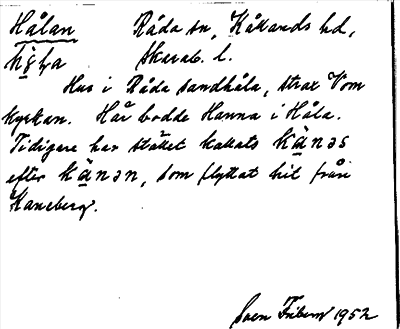 Hålan Råda sn, Kållands hd,
Skarab. l.
Hus i Råda sandhåla, strax V om
kyrkan. Här bodde Hanna i Håla.
Tidigare har stället kallats känəs
efter känən, som flyttat hit från
Kaneberg.
Sven Friberg 1952